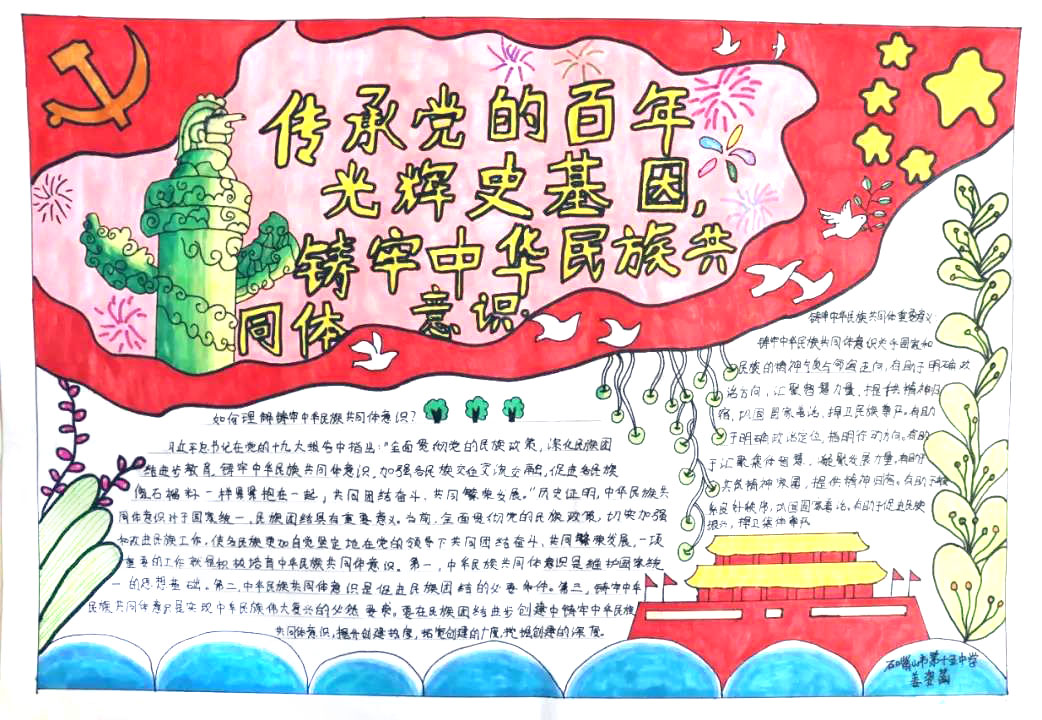 传承党的百年
光辉史基因,
铸牢中华民族共
同体意识。
如何理解铸牢中华民族共同体意识?
习近平总书记在党的十九大报告中指出:“全面贯彻党的民族政策,深化民族团
结进步教育,铸牢中华民族共同体意识,加强各民族交往交流交融,促进各民族
像石榴籽一样紧紧抱在一起,共同团结奋斗、共同繁荣发展。”历史证明,中华民族共
同体意识对于国家统一、民族团结具有重要意义。当前,全面贯彻党的民族政策,切实加强
和改进民族工作,使各民族更加自觉坚定地在党的领导下共同团结奋斗、共同繁荣发展,一项
重要的工作就是积极培育中华民族共同体意识。第一,中华民族共同体意识是维护国家统
一的思想基础。第二,中华民族共同体意识是促进民族团结的必要条件。第三,铸牢中华
民族共同体意识是实现中华民族伟大复兴的必然要求。要在民族团结进步创建中铸牢中华民族
共同体意识,提升创建热度,拓宽创建的广度,挖掘创建的深度。
铸牢中华民族共同体重要意义:
铸牢中华民族共同体意识关乎国家和
民族的精神气质与命运走向,有助于明确政
治方向,汇聚智慧力量,提供精神归
宿,巩固国家善治,捍卫民族尊严。有助
于明确政治定位,指明行动方向。有助
于汇聚集体智慧,凝聚发展力量,有助于
共筑精神家园,提供精神归宿。有助于维
系良好秩序,巩固国家善治。有助于促进民族
振兴,捍卫集体尊严
石嘴山市第十五中学